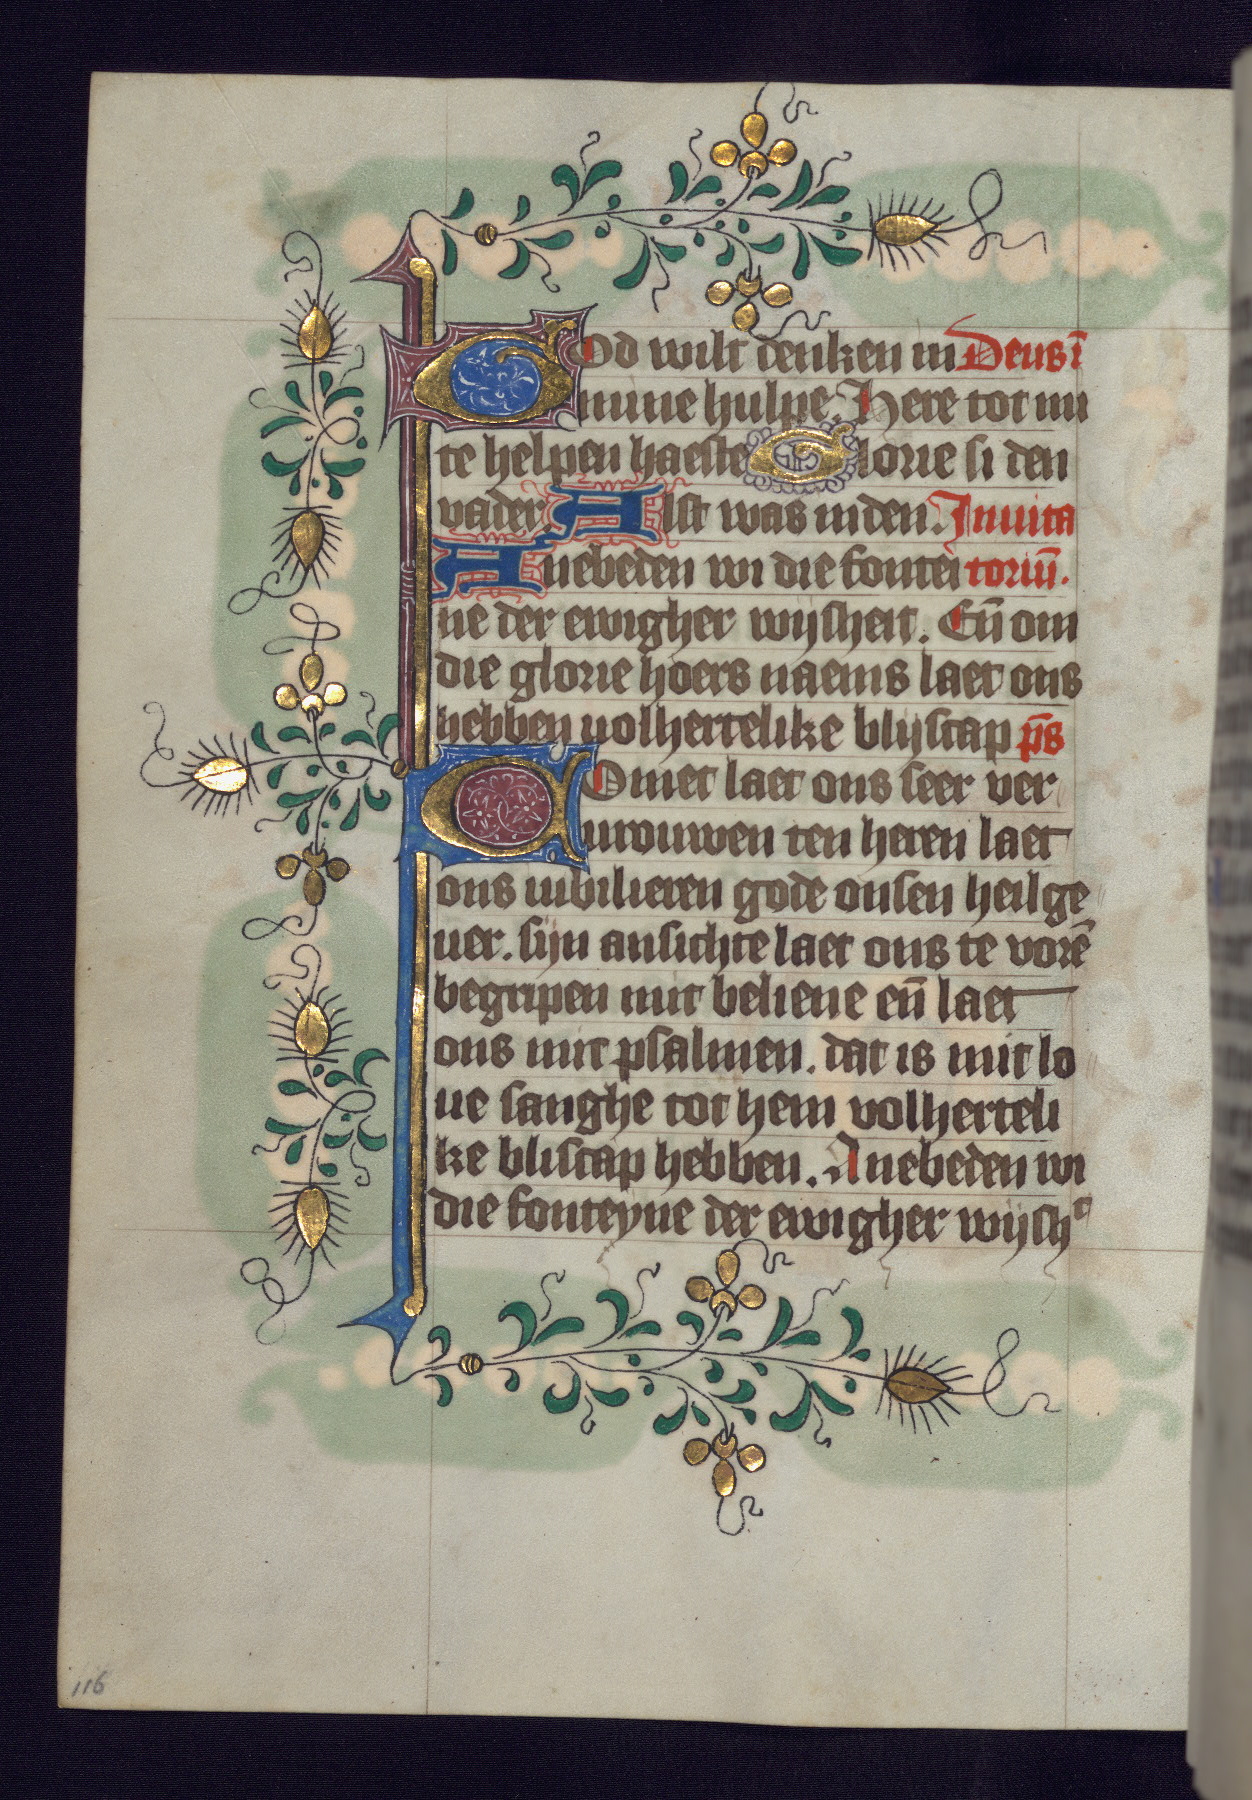 God wilt denken in Deus ī
mine hulpe. Here tot mi
te helpen haeste Glorie si den
vader. Alst was inden. Inuita
Anebeden wi die fontei toriū.
ne der ewigher wijsheit. Eñ om
die glorie hoers naems laet ons
hebben uolhertelike blijscap p̄s
Comet laet ons seer ver
urouwen ten heren laet
ons iubilieren gode onsen heilge
uer. sijn ansichte laet ons te vorē
begripen mit beliene eñ laet
ons mit psalmen. dat is mit lo
ue sanghe tot hem volherteli
ke bliscap hebben. Anebeden wi
die fonteyne der ewigher wijsh
116